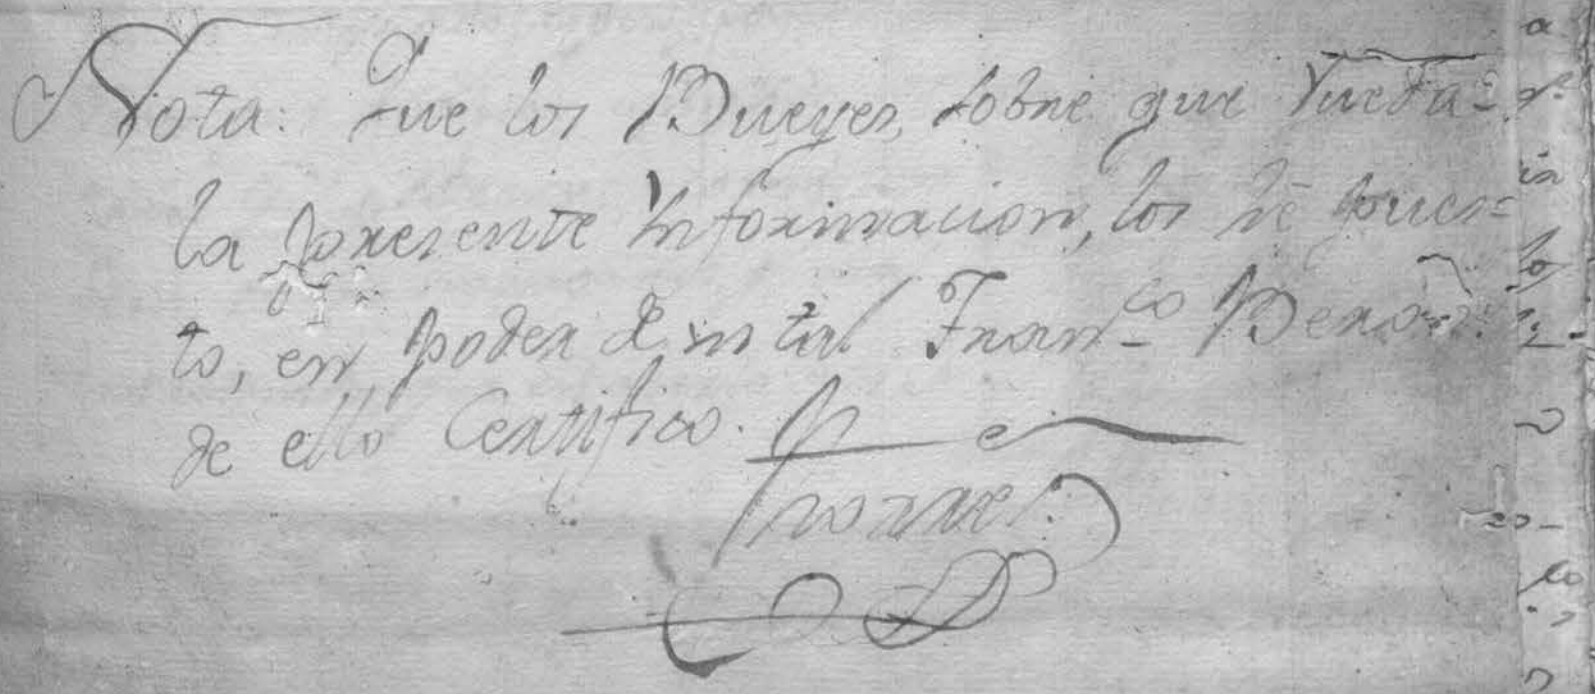 Nota: Que los Bueyes, sobre que rueda=
la presente Informacion, los hé pues=
to, en poder de un tal Fran.co
de ello Certifico.